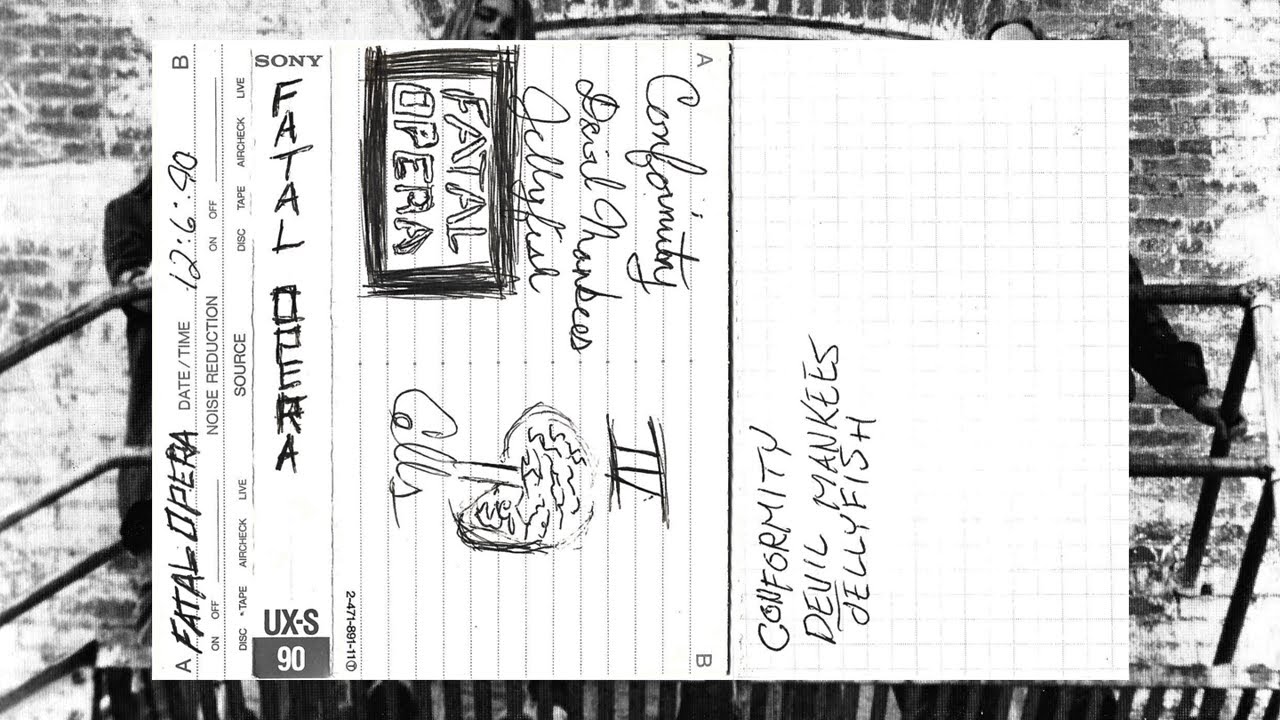 B
FATAL OPERA DATE/TIME 12:6:90
NOISE REDUCTION
ON OFF
ON OFF
SOURCE
DISC TAPE AIRCHECK LIVE
DISC •TAPE AIRCHECK LIVE
A
SONY
FATAL OPERA
UX-S
90
2-471-891-11①
A
Conformity
Devil Mankees
Jellyfish
FATAL
OPERA
B
II
Cells
CONFORMITY
DEVIL MANKEES
JELLYFISH